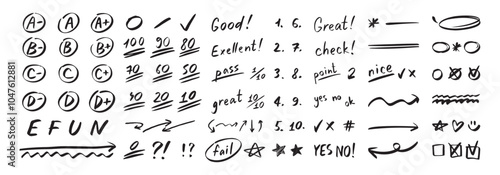 A- A A+ Good! 1. 6. Great! *
B- B B+ 100 90 80 Exellent! 2. 7. check!
C- C C+ 70 60 50 pass 1/10 3. 8. point 2 nice ✓ x
D- D D+ 40 20 10 great 10/10 4. 9. yes no ok
E F U N 5. 10. ✓ x #
0 ?! !? fail YES NO!
Adobe Stock | #1047612881